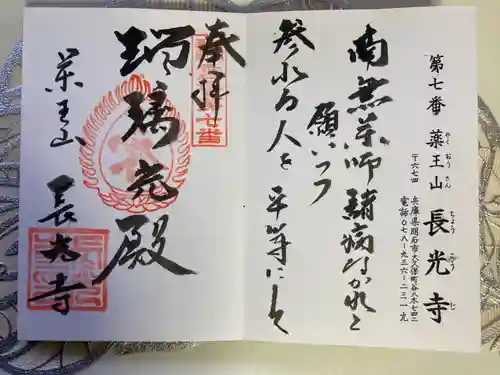 第七番 薬王山 長光寺
やくおうさん ちょうこうじ
〒六七四 兵庫県明石市大久保町谷八木七四二
電話〇七八-九三六-二三一九
南無薬師諸病なかれと
願いつつ
参れる人を平等にして
奉拝
瑠璃光殿
薬王山 長光寺